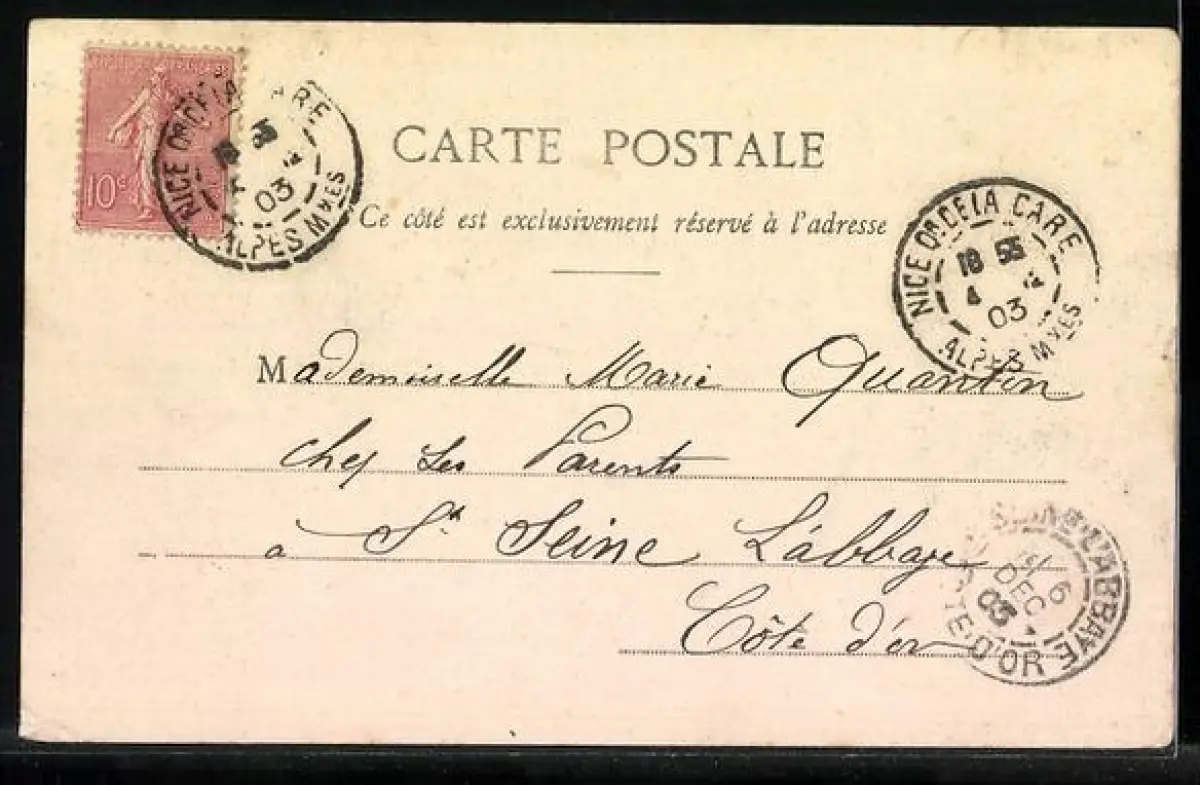 10c
NICE Oᴿ CE LA GARE
03
ALPES Mᴹᴱˢ
CARTE POSTALE
Ce côté est exclusivement réservé à l'adresse
NICE Oᴿ CE LA GARE
18 55
4 12
03
ALPES Mᴹᴱˢ
Mademoiselle Marie Quantin
chez Ses Parents
à Sᵗ Seine L'abbaye
Côte d'or
L'ABBAYE
6
DEC
03
D'OR